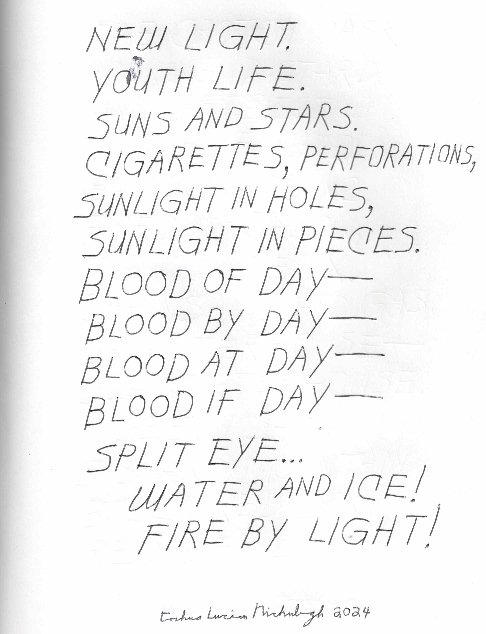 NEW LIGHT.
YOUTH LIFE.
SUNS AND STARS.
CIGARETTES, PERFORATIONS,
SUNLIGHT IN HOLES,
SUNLIGHT IN PIECES.
BLOOD OF DAY—
BLOOD BY DAY—
BLOOD AT DAY—
BLOOD IF DAY—
SPLIT EYE...
WATER AND ICE!
FIRE BY LIGHT!
Lucien 2024